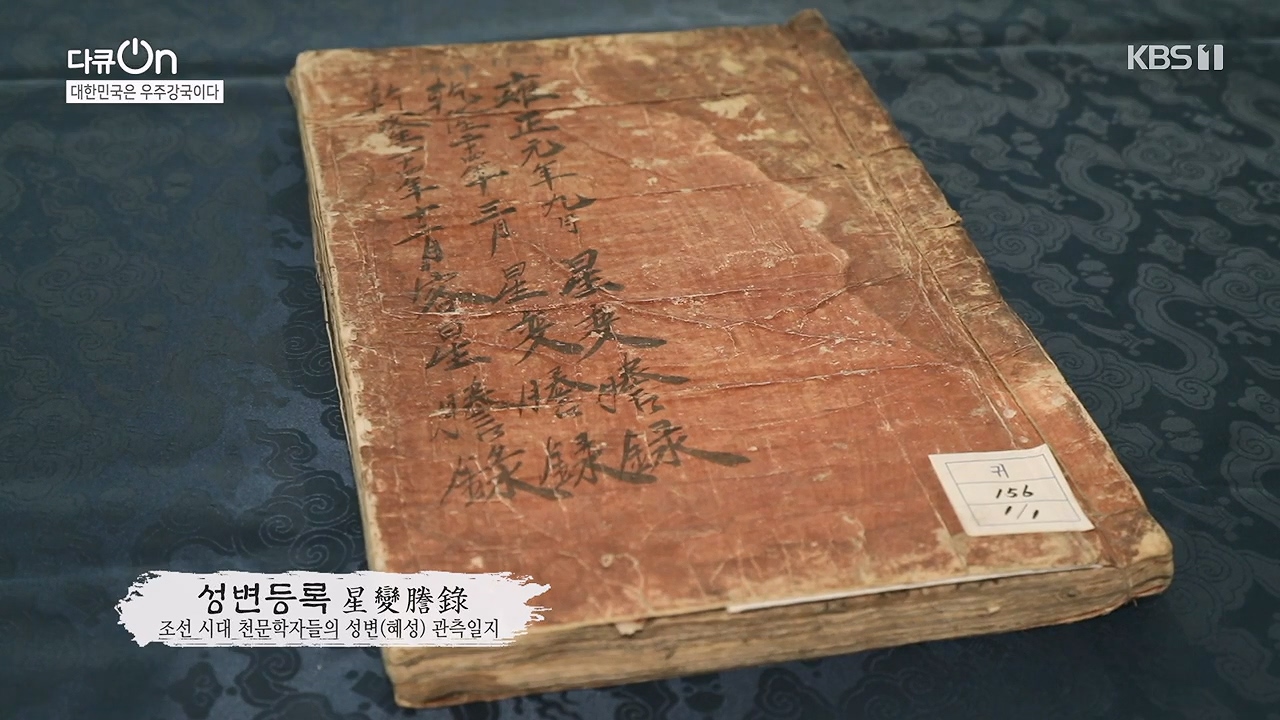 다큐On
대한민국은 우주강국이다
KBS1
雍正元年九月 星變謄錄
乾隆 年三月 星變謄錄
乾隆 年十二月客星謄錄
귀
156
1/1
성변등록 星變謄錄
조선 시대 천문학자들의 성변(혜성) 관측일지